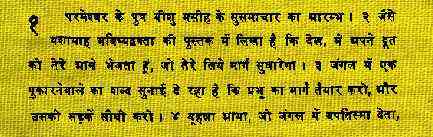 १ परमेश्वर के पुत्र यीशु मसीह के सुसमाचार का आरम्भ। २ जैसे
यशायाह भविष्यद्वक्ता की पुस्तक में लिखा है कि देख, मैं अपने दूत
को तेरे आगे भेजता हूं, जो तेरे लिये मार्ग सुधारेगा। ३ जंगल में एक
पुकारनेवाले का शब्द सुनाई दे रहा है कि प्रभु का मार्ग तैयार करो, और
उसकी सड़कें सीधी करो। ४ यूहन्ना आया, जो जंगल में बपतिस्मा देता,